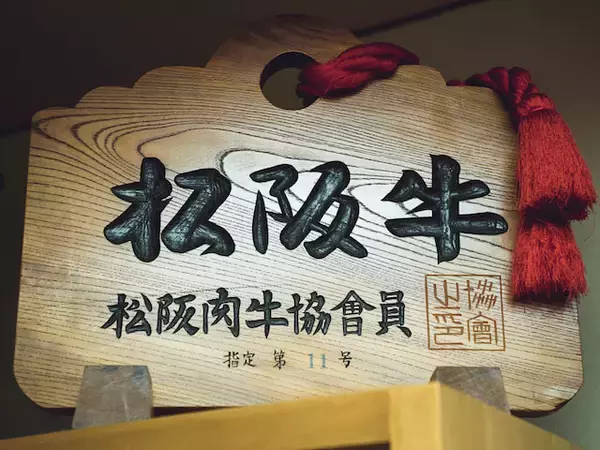 松阪牛
松阪肉牛協會員
指定 第 11 号
協會
之印